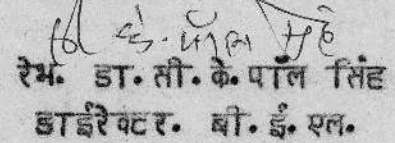 रेभ. डा. सी. के. पॉल सिंह
डाईरेक्टर. बी. ई. एल.